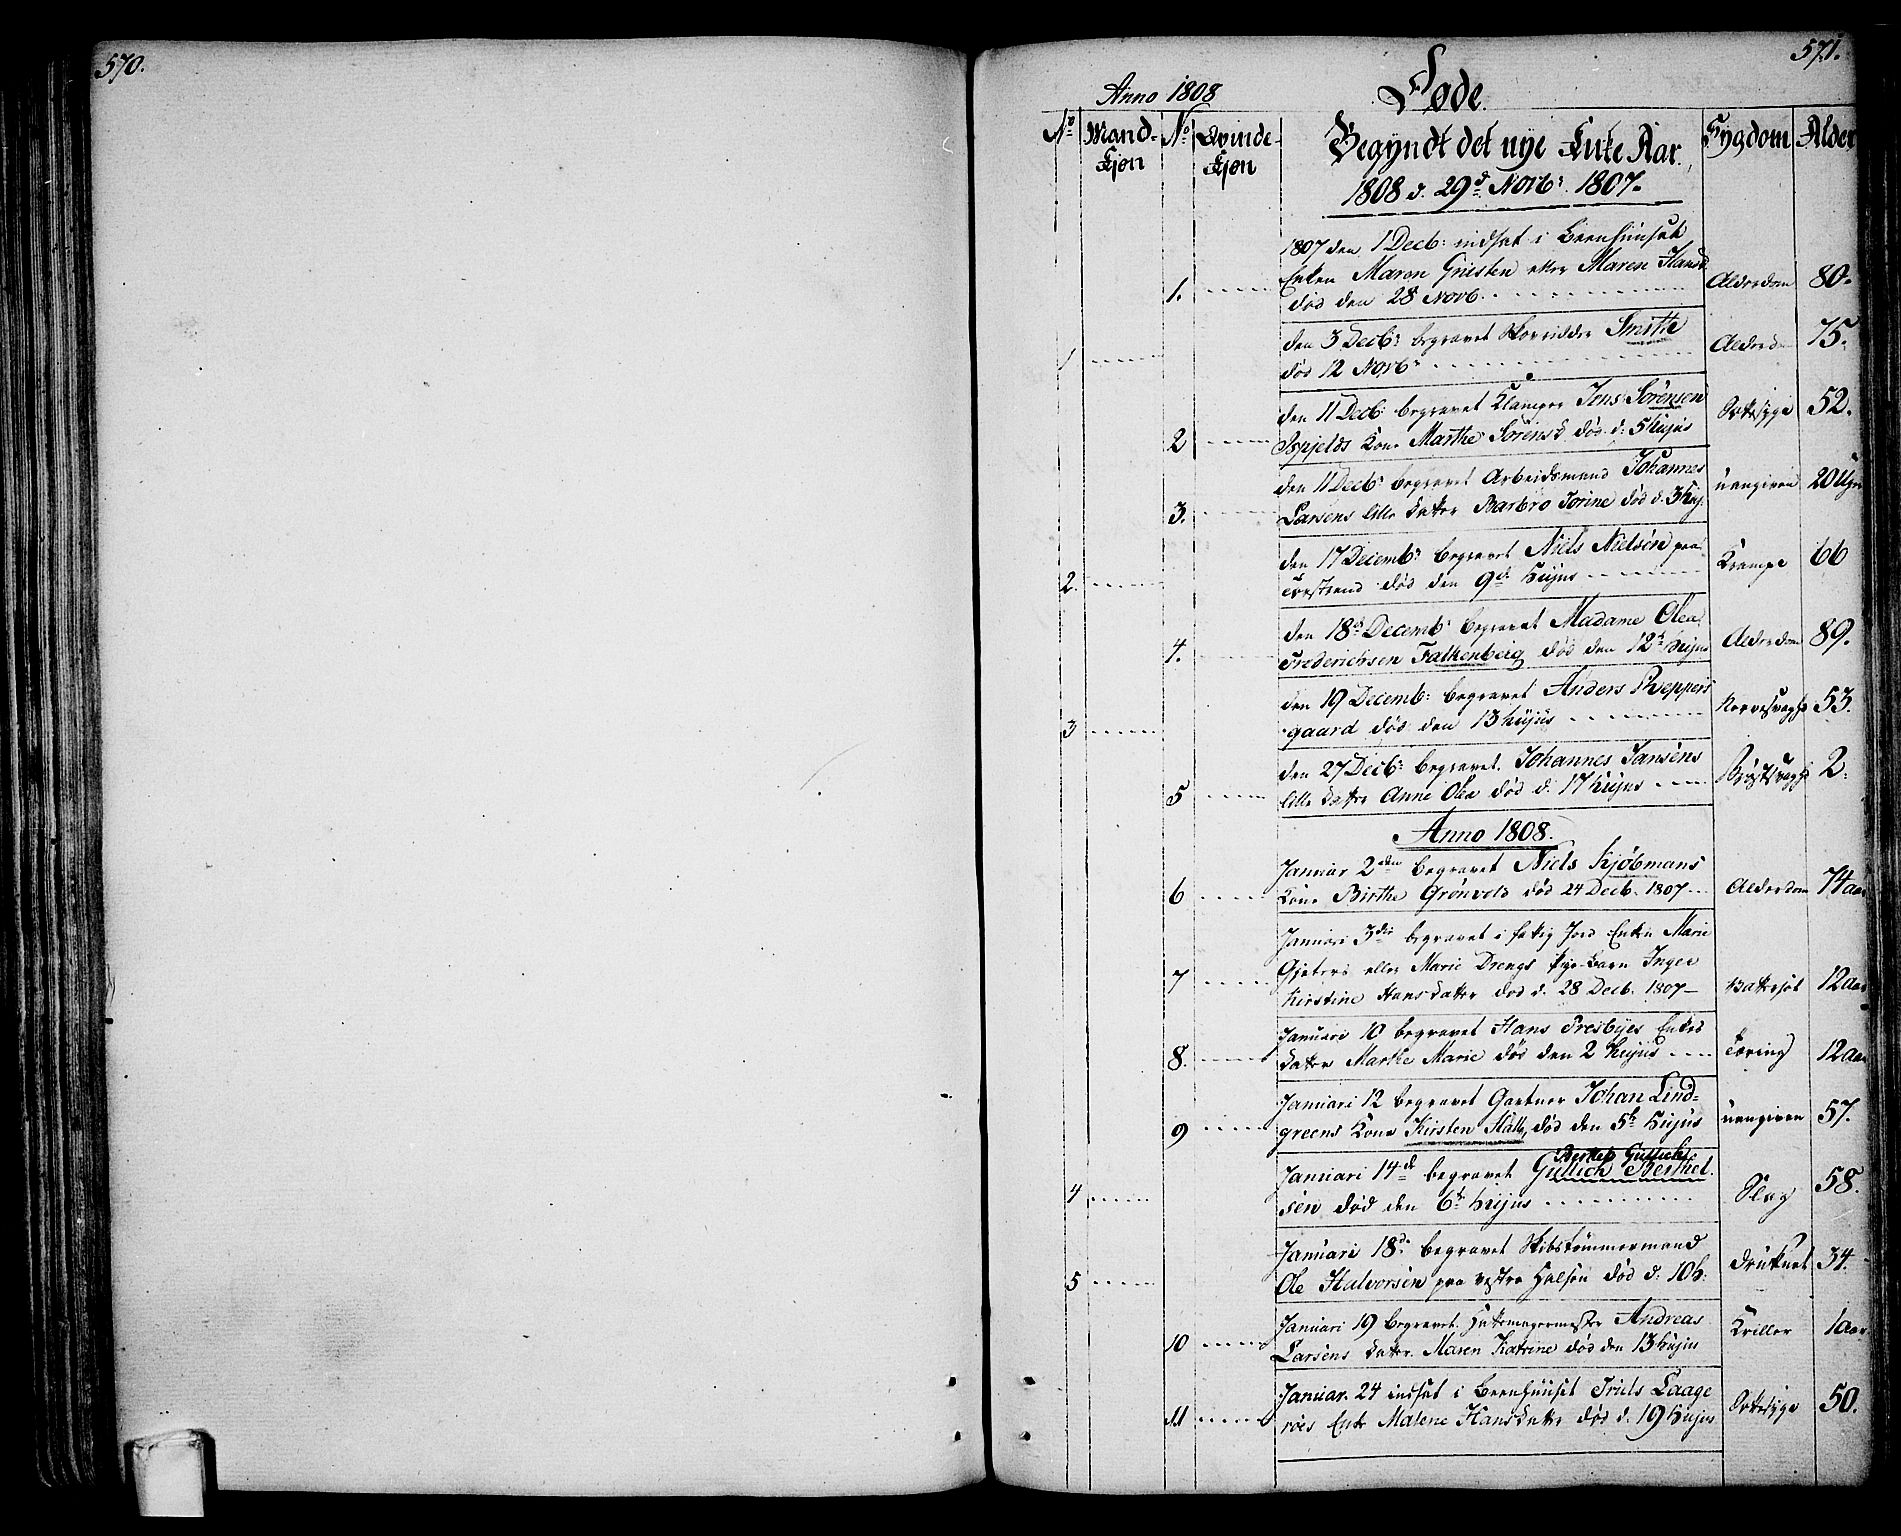 570.
571.
Anno 1808
Døde.
No Mand-Kjøn No Qvinde-Kjøn Begyndt det nye Kirke Aar Sygdom Alder
1808 d. 29d Novb: 1807.
1807 den 1 Decb: indsat i Beenhuuset
1. Enken Maren Gristen eller Maren Hansd Alderdom 80.
død den 28 Novb.
den 3 Decb: begravet Skovridder Smith
1 død 12 Novb: Alderd 75.
den 11 Decb: begravet Klamper Jens Sørensen
2 Kone Marthe Sørensd død d: 5 hujus 52.
den 11 Decb: begravet Arbeidsmand Johannes
3. Larsens lille Datter Barbro Torine død d. 3 huj. uangiven 20 Uger
den 17 Decemb: begravet Niels Nielsen paa
2. død den 9d hujus Krampe 66
den 18d Decemb: begravet Madame Olea
4. Frederichsen Falkenberg død den 12t hujus Alderdom 89.
den 19 Decemb: begravet Anders Reppers
3 gaard død den 13 hujus 53.
den 27 Decb: begravet Johannes Jansens
5 lille Datter Anne Olea død d. 17 hujus Brystsvaghd 2.
Anno 1808.
Januar 2den begravet Niels Kjøbmans
6 Kone Birthe Grønvold død 24 Decb. 1807 Alderdom 74 aar
Januari 3die begravet i fattig Jord Enken Marie
7 Gjeters eller Marie Drengs pige-Barn Inger 12 aar
Kirstine Hansdatter død d. 28 Decb. 1807
Januari 10 begravet Hans Presbyes Enkes
8. Datter Marthe Marie død den 2 hujus Tæring 12 aar
Januari 12 begravet Gartner Johan Lind-
9 greens Kone Kirsten Hålt, død den 5t hujus uangiven 57.
Berthel Gullichs
Januari 14d begravet Gullich Berthel.
4 sen død den 6t hujus Slag 58.
Januari 18d: begravet Skibstømmermand
5 Ole Halvorsen paa vestre Halsen død d: 10 h: Druknet 34.
Januari 19 begravet Hattemagermester Andreas
10 Larsens Datter Maren Katrine død den 13 hujus 1 aar
Januar. 24 indsat i Beenhuuset Truls Laage
11 røes Enke Malene Hansdatter død d. 19 hujus 50.